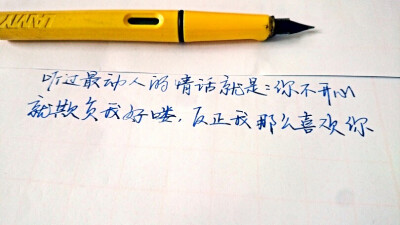 LAMY
听过最动人的情话就是：你不开心
就欺负我好喽，反正我那么喜欢你